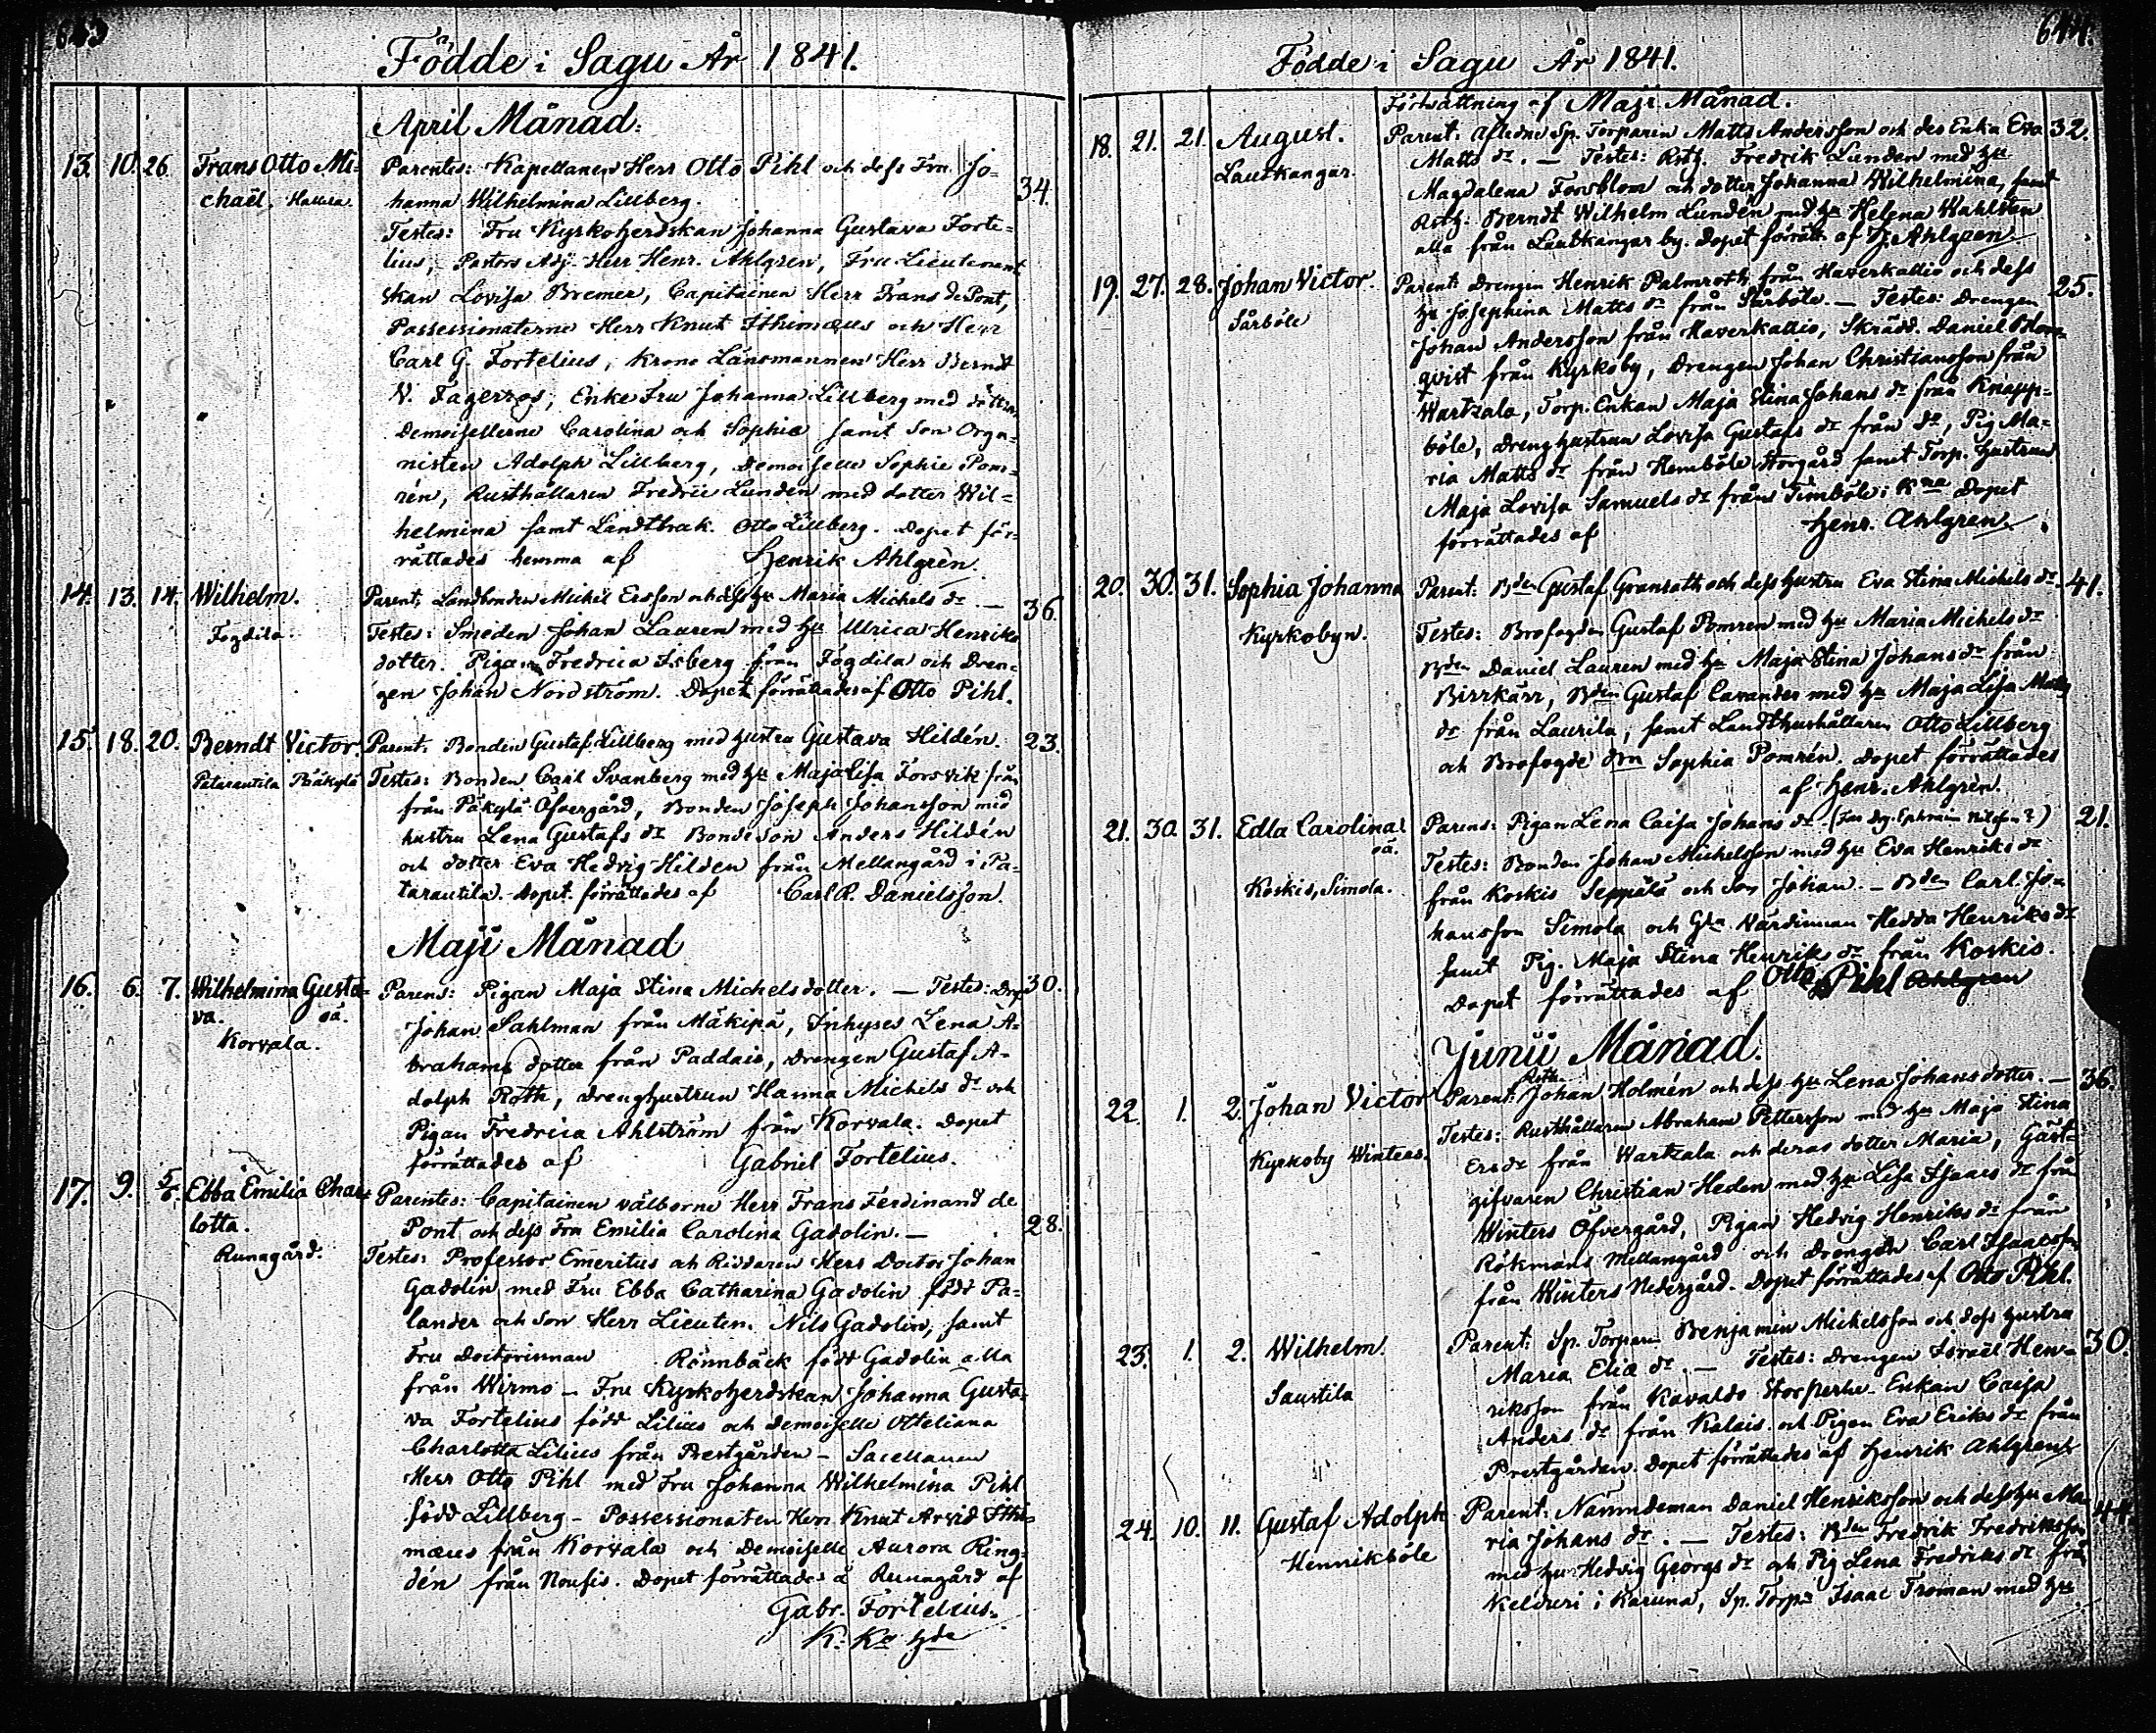 643
Födde i Sagu År 1841.
April Månad.
13. 10. 26. Frans Otto Mi-
chaël, Hallela.
Parentes: Kapellanen Herr Otto Pihl och dess Fru Jo- 34.
hanna Wilhelmina Lillberg.
Testes: Fru Kyrkoherdskan Johanna Gustava Forte-
lius, Pastors Adj. Herr Henr. Ahlgren, Fru Lieutenant
skan Lovisa Bremer, Capitainen Herr Frans de Pont,
Possessionaterne Herr Knut Ithimæus och Herr
Carl G. Fortelius, Krono Länsmannen Herr Berndt
V. Fagerros, Enke Fru Johanna Lillberg med döttrar
Demoisellerne Carolina och Sophie samt Son Orga-
nisten Adolph Lillberg, Demoiselle Sophie Pom-
rén, Rusthållaren Fredric Lunden med dotter Wil-
helmina samt Landtbruk. Otto Lillberg. Dopet för-
rättades hemma af Henrik Ahlgrèn.
14. 13. 14. Wilhelm.
Fogdila.
Parent: Landbonden Michël Ersson och dess hu Maria Michels dr. — 36.
Testes: Smeden Johan Lauren med hu Ulrica Henriks
dotter. Pigan Fredrica Isberg från Fogdila och Dren-
gen Johan Nordström. Dopet förrättades af Otto Pihl.
15. 18. 20. Berndt Victor.
Patarautila Päkylä
Parent: Bonden Gustaf Lillberg med hustru Gustava Hildén. 23.
Testes: Bonden Carl Svanberg med hu Maja Lisa Forsvik från
från Päkylä Öfvergård, Bonden Joseph Johansson med
hustru Lena Gustafs dr Bonde Son Anders Hildén
och dotter Eva Hedvig Hilden från Mellangård i Pa-
tarautila. Dopet förrättades af Carl R. Danielsson.
Maji Månad
16. 6. 7. Wilhelmina Gusta-
va. oä.
Korvala.
Parens: Pigan Maja Stina Michelsdotter. — Testes: Drg 30.
Johan Sahlman från Mäkipä, Inhyses Lena A-
brahams dotter från Paddais, Drengen Gustaf A-
dolph Roth, Dreng hustrun Hanna Michels dr och
Pigan Fredrica Ahlström från Korvala. Dopet
förrättades af Gabriel Fortelius.
17. 9. 5/6. Ebba Emilia Char-
lotta.
Runagård.
Parentes: Capitainen välborne Herr Frans Ferdinand de
Pont och dess Fru Emilia Carolina Gadolin. — 28.
Testes: Professor Emeritus och Riddaren Herr Doctor Johan
Gadolin med Fru Ebba Catharina Gadolin född Pa-
lander och Son Herr Lieuten. Nils Gadolin, samt
Fru Doctorinnan Rönnbäck född Gadolin alla
från Wirmo — Fru Kyrkoherdskan Johanna Gusta-
va Fortelius född Lilius och Demoiselle Otteliana
Charlotta Lilius från Prestgården — Sacellanen
Herr Otto Pihl med Fru Johanna Wilhelmina Pihl
född Lillberg — Possessionaten Herr Knut Arvid Ithi-
mæus från Korvala och Demoiselle Aurora Ring-
dén från Noufis. Dopet förrättades å Runagård af
Gabr. Fortelius.
K. Ko hde
644.
Födde i Sagu År 1841.
Fortsättning af Maji Månad.
18. 21. 21. August.
Lautkangar.
Parent: Aflidne Sp. Torparen Matts Andersson och des Enka Eva 32.
Matts dr. — Testes: Rsth. Fredrik Lundan med hu
Magdalena Forsblom och dotter Johanna Wilhelmina, samt
Rsth. Berndt Wilhelm Lundén med hu Helena Wahlsten
alla från Lautkangar by. Dopet förrätt. af H. Ahlgren.
19. 27. 28. Johan Victor.
Sårböle
Parent: Drengen Henrik Palmroth från Haverkallio och dess 25.
hu Josephina Matts dr från Sårböle. — Testes: Drengen
Johan Andersson från Haverkallio, Skrädd. Daniel Blom-
qvist från Kyrkoby, Drengen Johan Christiansson från
Wartzala, Torp. Enkan Maja Stina Johans dr från Knapp-
böle, Dreng hustrun Lovisa Gustafs dr från do, Pig. Ma-
ria Matts dr från Hemböle Storgård samt Torp. hustrun
Maja Lovisa Samuels dr från Timböle i Kna Dopet
förrättades af Henr. Ahlgren.
20. 30. 31. Sophia Johanna
Kyrkobyn.
Parent: Bden Gustaf Granroth och dess hustru Eva Stina Michels dr. 41.
Testes: Brofogden Gustaf Pomren med hu Maria Michels dr
Bden Daniel Lauren med hu Maja Stina Johans dr från
Birrkärr, Bden Gustaf Cavander med hu Maja Lisa Matts
dr från Laurila, samt Landthushållaren Otto Lillberg
och Brofogde drn Sophia Pomrén. Dopet förrättades
af Henr. Ahlgrèn.
21. 30. 31. Edla Carolina
oä.
Koskis, Simola.
Parens: Pigan Lena Caisa Johans dr. (Far Drg. Ephraim Nilsson?) 21.
Testes: Bonden Johan Michelsson med hu Eva Henriks dr
från Koskis Seppälä och Son Johan. — Bden Carl Jo-
hansson Simola och Gla Värdinnan Hedda Henriks dr
samt Pig. Maja Stina Henriks dr från Koskis.
Dopet förrättades af Otto Pihl Ahlgren
Junii Månad.
22. 1. 2. Johan Victor
Kyrkoby Winters.
Rsth.
Parent: Johan Holmén och dess hu Lena Johansdotter. — 36.
Testes: Rusthållaren Abraham Pettersson med hu Maja Stina
Ers dr från Wartzala och deras dotter Maria, Gäst-
gifvaren Christian Heden med hu Lisa Isaacs dr från
Winters Öfvergård, Pigan Hedvig Henriks dr från
Rökmans Mellangård och Drengen Carl Isaacsson
från Winters Nedergård. Dopet förrättades af Otto Pihl.
23. 1. 2. Wilhelm.
Saustila
Parent: Sp. Torparen Benjamin Michelsson och dess hustru
Maria Eliæ dr. — Testes: Drengen Israël Hen- 30.
riksson från Kavaldo Storperhe. Enkan Caisa
Anders dr från Kalais och Pigan Eva Eriks dr från
Prestgården. Dopet förrättades af Henrik Ahlgren.
24. 10. 11. Gustaf Adolph
Hennikböle
Parent: Nämndeman Daniel Henriksson och dess hu Ma- 44.
ria Johans dr. — Testes: Bden Fredrik Fredriksson
med hu Hedvig Georgs dr och Pig Lena Fredriks dr från
Kelduri i Karuna, Sp. Torp. Isaac Troman med hu